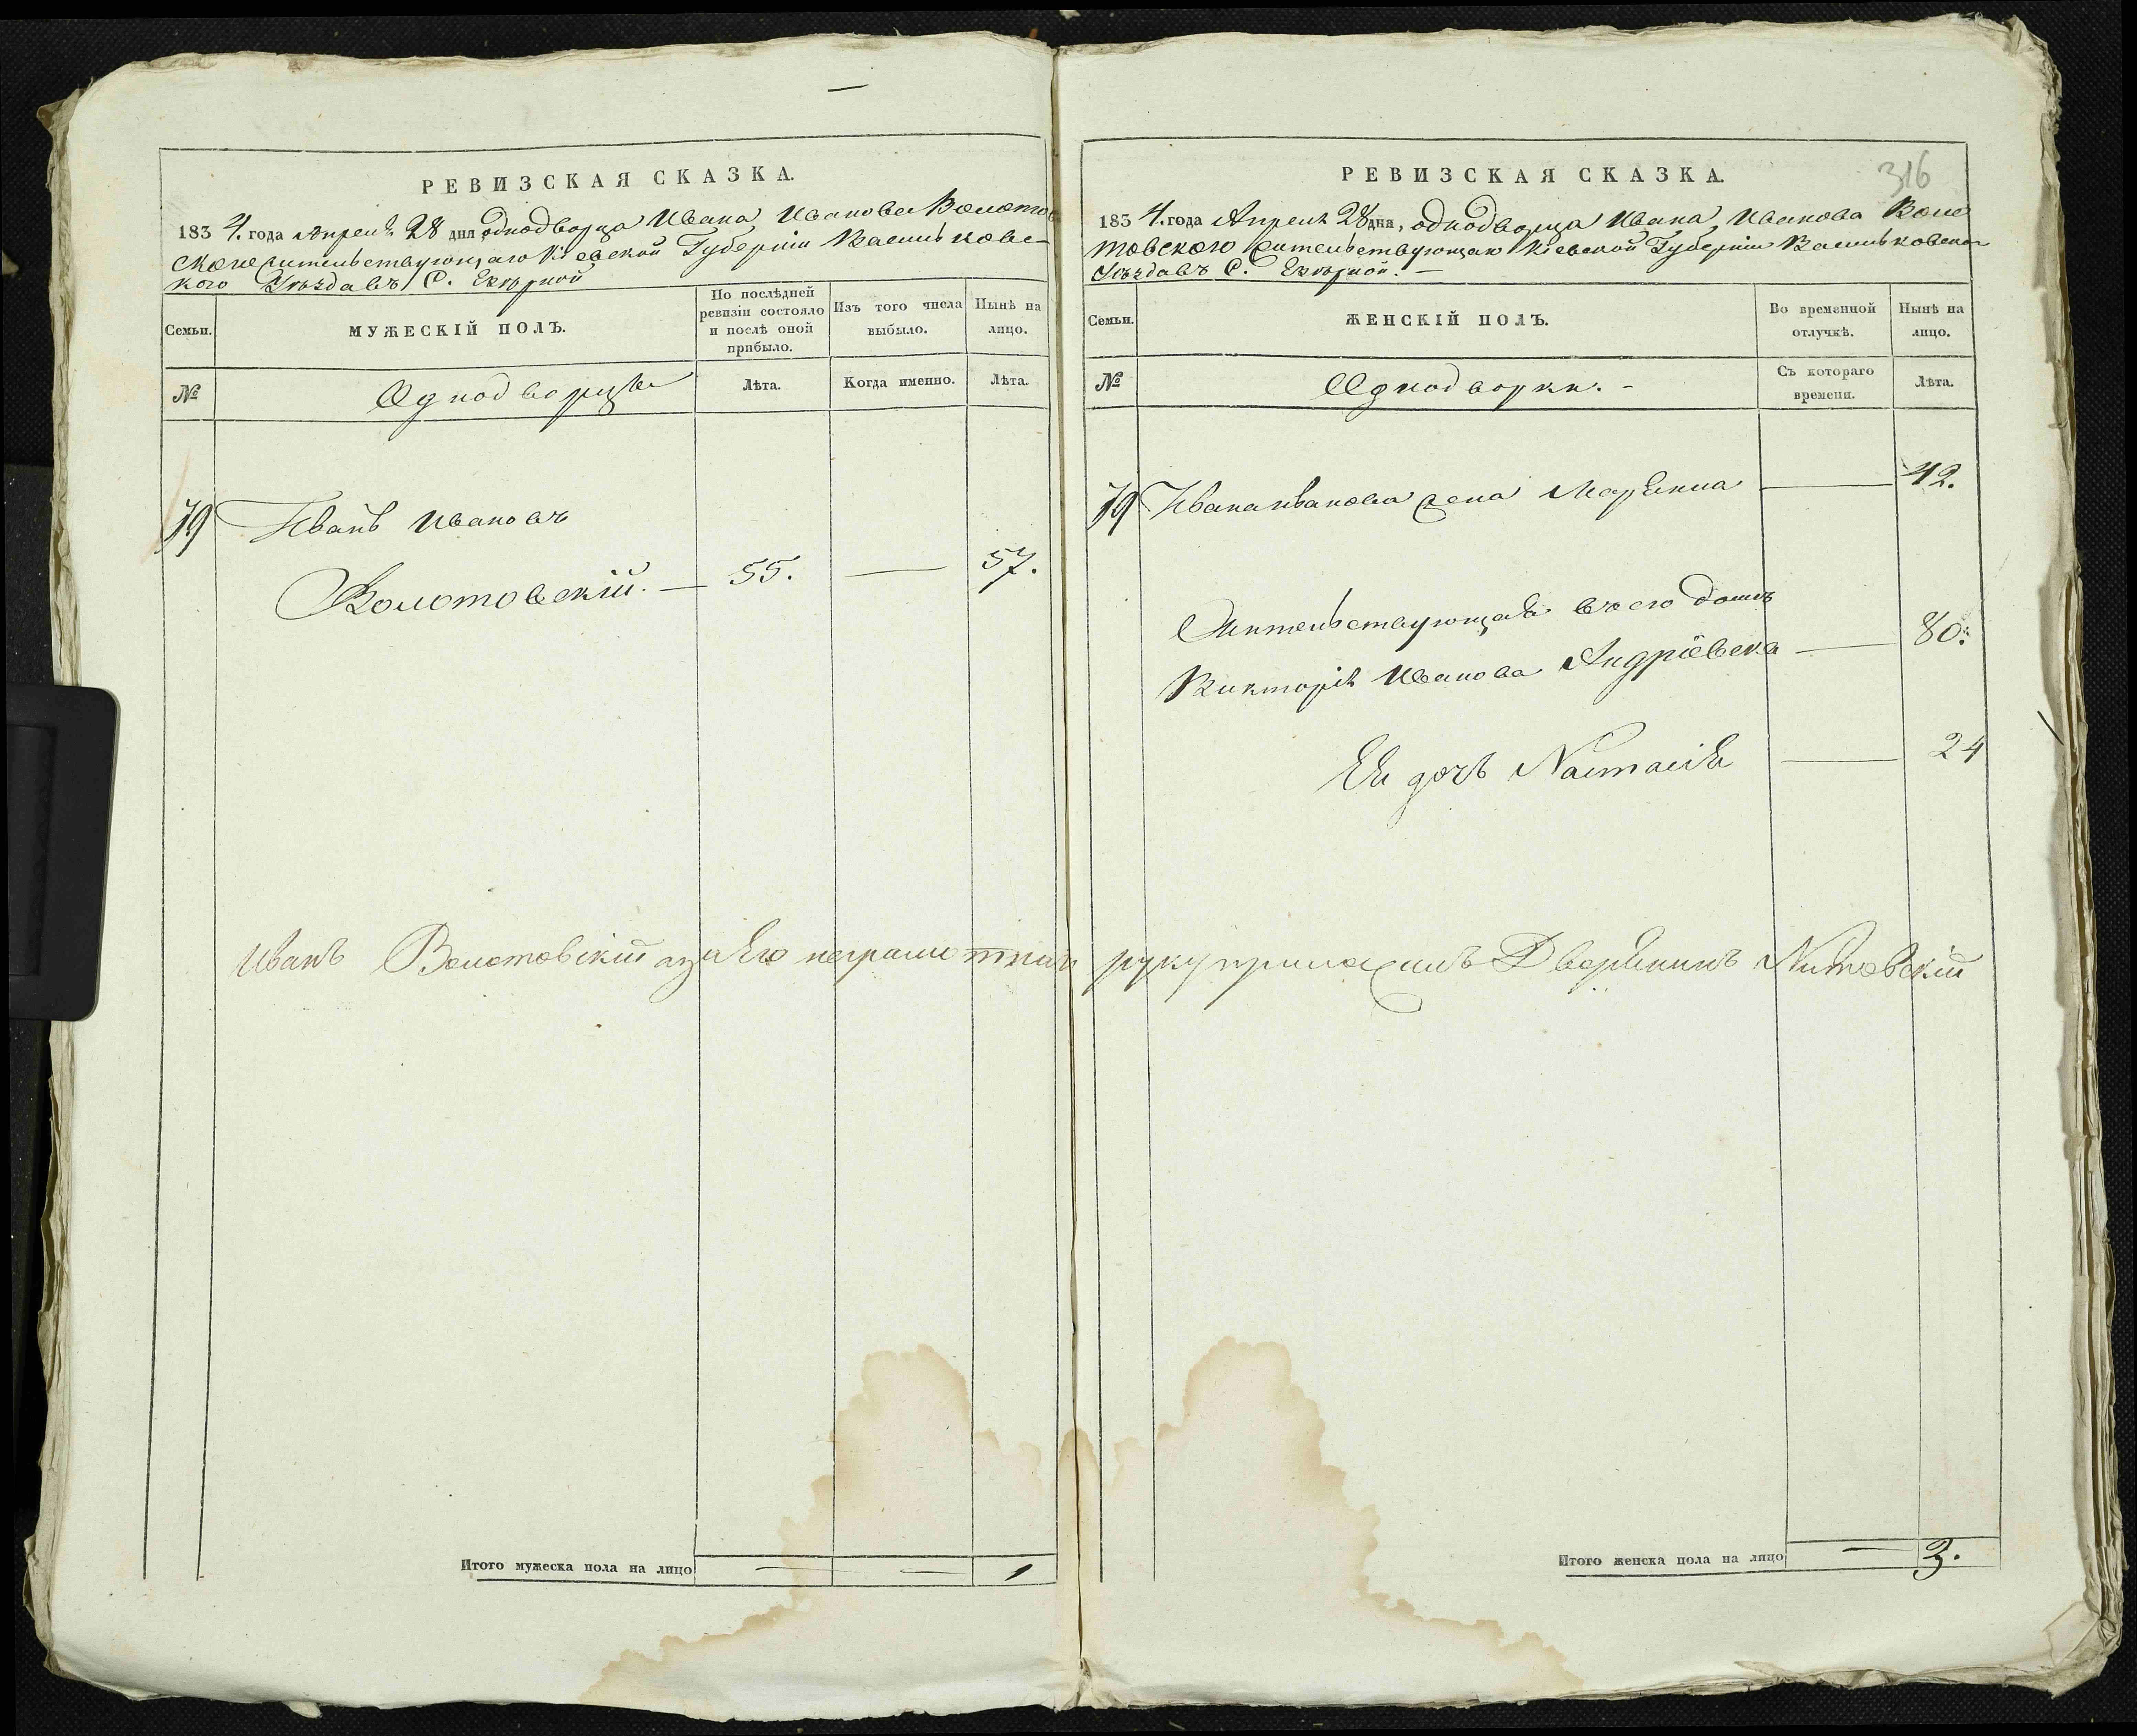 РЕВИЗСКАЯ СКАЗКА.
1834. года Апреля 28 дня однодворца Ивана Иванова Волотов
ского жительствующаго Кіевской Губерніи Васильковс-
кого Уѣзда въ С.
Семьи.
МУЖЕСКІЙ ПОЛЪ.
По послѣдней ревизіи состояло и послѣ оной прибыло.
Изъ того числа выбыло.
Нынѣ на лицо.
№
Однодворцы
Лѣта.
Когда именно.
Лѣта.
19
Иванъ Ивановъ
Волотовскій. — 55. — 57.
Иванъ Волотовскій а за его неграмотнаго
Итого мужеска пола на лицо — — 1
316
РЕВИЗСКАЯ СКАЗКА.
1834. года Апреля 28 дня, однодворца Ивана Иванова Воло
товского жительствующаго Кіевской Губерніи Васильковского
Уѣзда въ С.
Семьи.
ЖЕНСКІЙ ПОЛЪ.
Во временной отлучкѣ.
Нынѣ на лицо.
№
Однодворки. -
Съ котораго времени.
Лѣта.
19 Ивана Иванова жена Марянна — 42.
Жительствующая въ его домѣ
Викторія Иванова Андріевска — 80.
Ея дочь Настасія — 24
руку приложилъ Дворянинъ
Итого женска пола на лицо — 3.